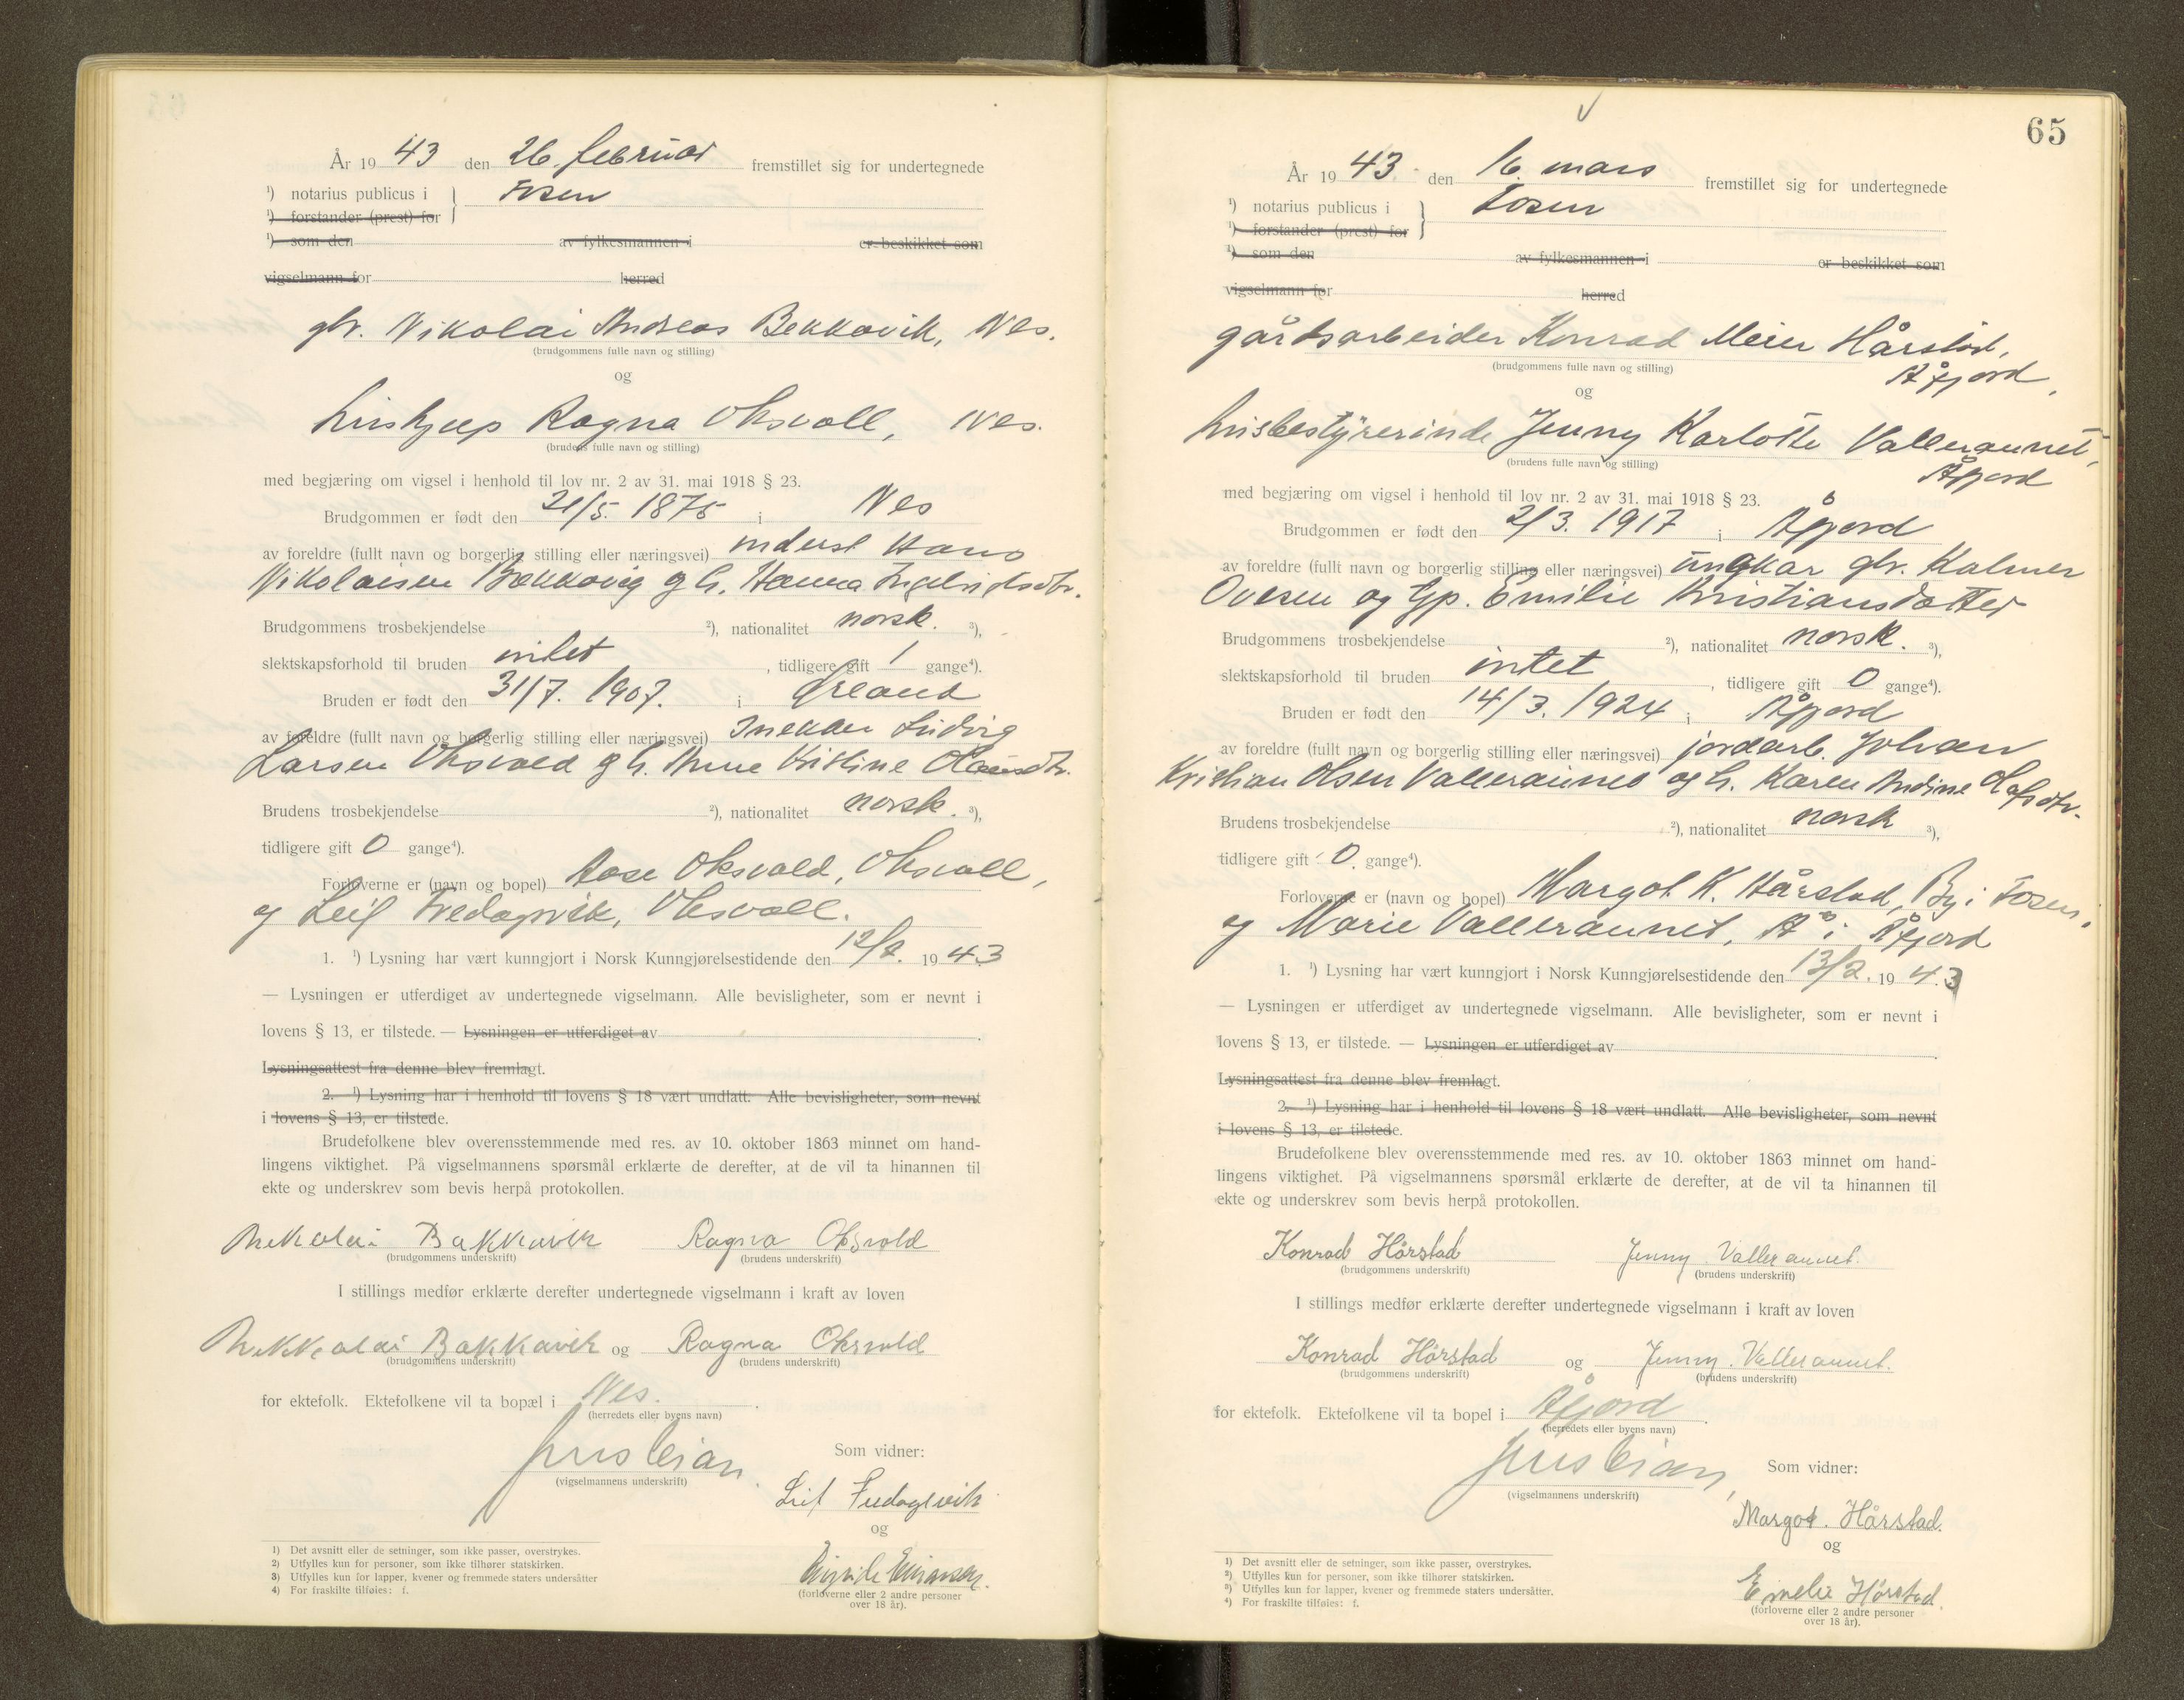 År 19 43 den 26. februar fremstillet sig for undertegnede
¹) notarius publicus i } Fosen
¹) forstander (prest) for
¹) som den av fylkesmannen i er beskikket som
vigselmann for herred
gbr. Nikolai Andreas Bekkavik, Nes.
(brudgommens fulle navn og stilling)
og
hushjelp Ragna Oksvoll, Nes.
(brudens fulle navn og stilling)
med begjæring om vigsel i henhold til lov nr. 2 av 31. mai 1918 § 23.
Brudgommen er født den 21/5. 1875 i Nes
av foreldre (fullt navn og borgerlig stilling eller næringsvei) inderst Hans
Nikolaisen Bekkavig og h. Hanna
Brudgommens trosbekjendelse ²), nationalitet norsk. ³),
slektskapsforhold til bruden intet, tidligere gift 1 gange⁴).
Bruden er født den 31/7. 1907. i Ørland
av foreldre (fullt navn og borgerlig stilling eller næringsvei) snekker Ludvig
Larsen Oksvold og h. Anne Kristine
Brudens trosbekjendelse ²), nationalitet norsk. ³),
tidligere gift 0 gange⁴).
Forloverne er (navn og bopel) Aase Oksvold, Oksvoll,
og Leif Fredagsvik, Oksvoll.
1. ¹) Lysning har vært kunngjort i Norsk Kunngjørelsestidende den 12/2. 19 43
— Lysningen er utferdiget av undertegnede vigselmann. Alle bevisligheter, som er nevnt i
lovens § 13, er tilstede. — Lysningen er utferdiget av .
Lysningsattest fra denne blev fremlagt.
2. ¹) Lysning har i henhold til lovens § 18 vært undlatt. Alle bevisligheter, som nevnt
i lovens § 13, er tilstede.
Brudefolkene blev overensstemmende med res. av 10. oktober 1863 minnet om hand-
lingens viktighet. På vigselmannens spørsmål erklærte de derefter, at de vil ta hinannen til
ekte og underskrev som bevis herpå protokollen.
Nekolai Bakkavik Ragna Oksvold
(brudgommens underskrift) (brudens underskrift)
I stillings medfør erklærte derefter undertegnede vigselmann i kraft av loven
Nekkolai Bakkavik og Ragna Oksvold
(brudgommens underskrift) (brudens underskrift)
for ektefolk. Ektefolkene vil ta bopæl i Nes.
(herredets eller byens navn)
Som vidner:
(vigselmannens underskrift)
Leif Fredagsvik
og
(forloverne eller 2 andre personer
over 18 år).
1) Det avsnitt eller de setninger, som ikke passer, overstrykes.
2) Utfylles kun for personer, som ikke tilhører statskirken.
3) Utfylles kun for lapper, kvener og fremmede staters undersåtter
4) For fraskilte tilføies: f.
65
År 19 43. den 16. mars fremstillet sig for undertegnede
¹) notarius publicus i } Fosen
¹) forstander (prest) for
¹) som den av fylkesmannen i er beskikket som
vigselmann for herred
gårdsarbeider Konrad Meier Hårstad,
Åfjord,
(brudgommens fulle navn og stilling)
og
husbestyrerinde Jenny Karlotte Valleraunet,
Åfjord
(brudens fulle navn og stilling)
med begjæring om vigsel i henhold til lov nr. 2 av 31. mai 1918 § 23.
Brudgommen er født den 2/3. 1917 i Åfjord
av foreldre (fullt navn og borgerlig stilling eller næringsvei) ungkar gbr. Kalmer
Ovesen og Gp. Emilie Kristiansdatter
Brudgommens trosbekjendelse ²), nationalitet norsk. ³),
slektskapsforhold til bruden intet, tidligere gift 0 gange⁴).
Bruden er født den 14/3. 1924 i Åfjord
av foreldre (fullt navn og borgerlig stilling eller næringsvei) jordarb. Johan
Kristian Olsen Valleraunet og h. Karen Andine Olafsdtr.
Brudens trosbekjendelse ²), nationalitet norsk ³),
tidligere gift 0. gange⁴).
Forloverne er (navn og bopel) Margot K. Hårstad, By i Fosen,
og Marie Valleraunet, Å i Åfjord
1. ¹) Lysning har vært kunngjort i Norsk Kunngjørelsestidende den 13/2. 19 43
— Lysningen er utferdiget av undertegnede vigselmann. Alle bevisligheter, som er nevnt i
lovens § 13, er tilstede. — Lysningen er utferdiget av .
Lysningsattest fra denne blev fremlagt.
2. ¹) Lysning har i henhold til lovens § 18 vært undlatt. Alle bevisligheter, som nevnt
i lovens § 13, er tilstede.
Brudefolkene blev overensstemmende med res. av 10. oktober 1863 minnet om hand-
lingens viktighet. På vigselmannens spørsmål erklærte de derefter, at de vil ta hinannen til
ekte og underskrev som bevis herpå protokollen.
Konrad Hårstad Jenny Valleraunet.
(brudgommens underskrift) (brudens underskrift)
I stillings medfør erklærte derefter undertegnede vigselmann i kraft av loven
Konrad Hårstad og Jenny. Valleraunet.
(brudgommens underskrift) (brudens underskrift)
for ektefolk. Ektefolkene vil ta bopel i Åfjord.
(herredets eller byens navn)
Som vidner:
(vigselmannens underskrift)
Margot. Hårstad.
og
Emelie Hårstad.
(forloverne eller 2 andre personer
over 18 år).
¹) Det avsnitt eller de setninger, som ikke passer, overstrykes.
²) Utfylles kun for personer, som ikke tilhører statskirken.
³) Utfylles kun for lapper, kvener og fremmede staters undersåtter.
⁴) For fraskilte tilføies: f.